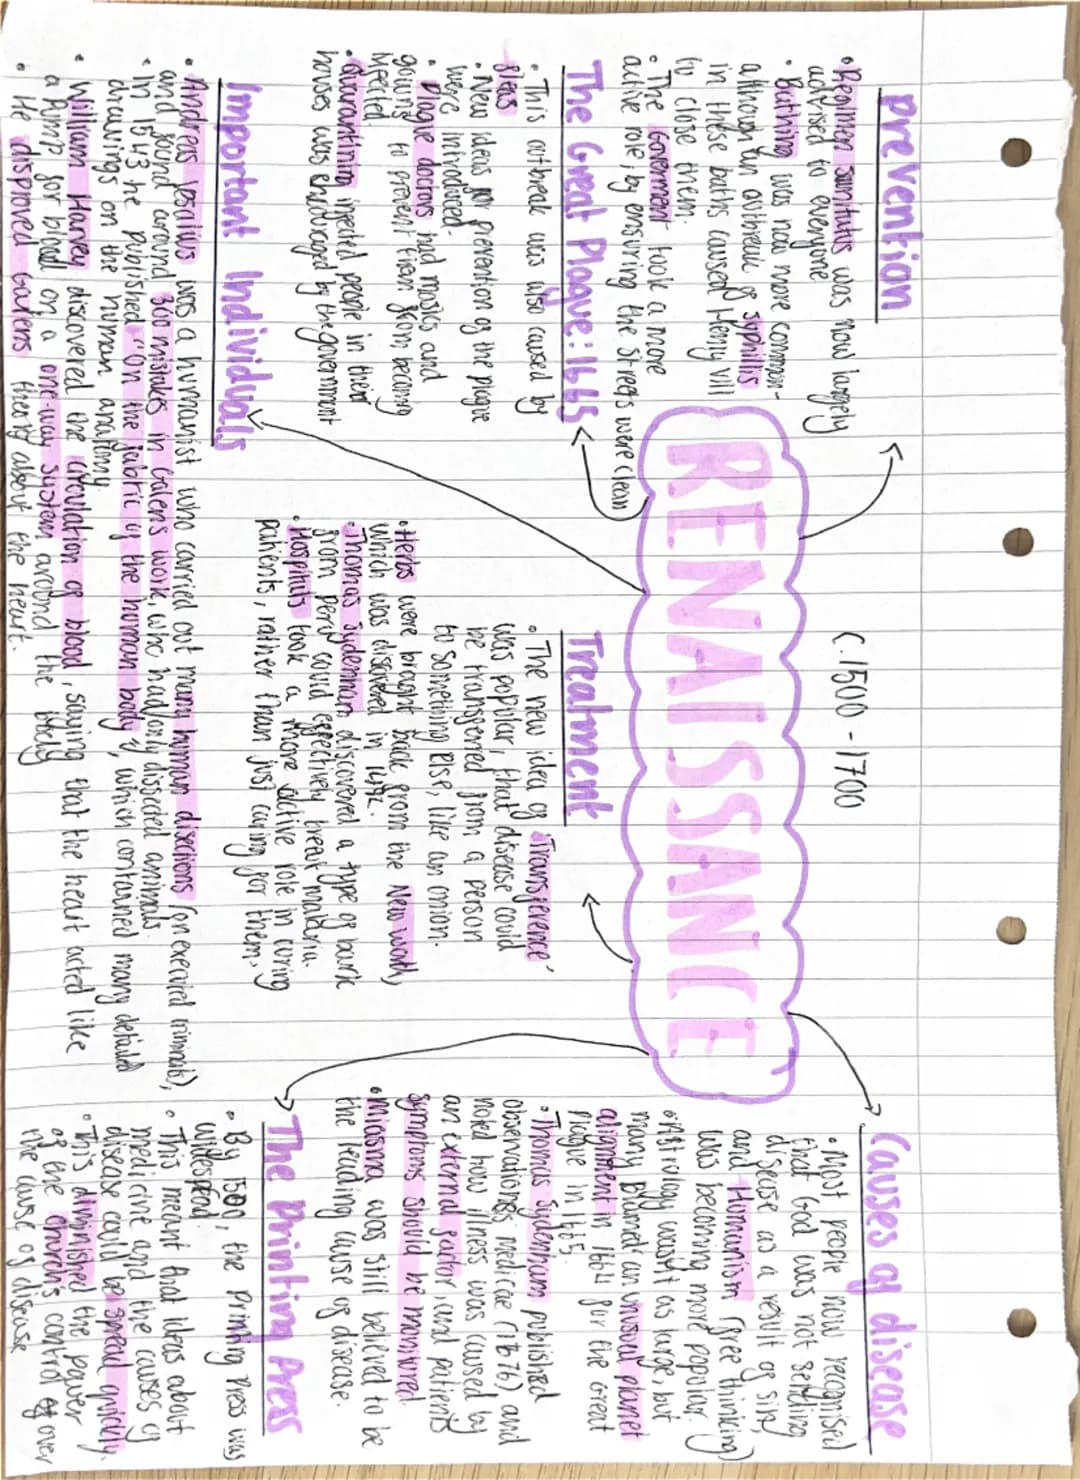 C.1500 - 1700
RENAISSANCE
Prevention
• Regimen Sanitatis was now largely
advised to everyone
• Bathing was now more common -
although an outbreak of syphillis
in these baths caused Henry VIII
to close them.
• The Government took a more
active role, by ensuring the streets were clean
The Great Plague: 1665
• This outbreak was also caused by
fleas
• New ideas for prevention of the plague
were introduced.
• Plague doctors had masks and
gowns to prevent them from becoming
infected.
• Quarantining infected people in their
houses was encouraged by the government
Important Individuals
• Andreas Vesalius was a humanist who carried out many human disections (on executed criminals),
and found around 300 mistakes in Galens work, who had only dissected animals.
• In 1543 he published 'On the fabric of the human body', which contained many detailed
drawings on the human anatomy.
• William Harvey discovered the circulation of blood, saying that the heart acted like
a pump for blood on a one-way system around the body
• He disproved Galens theory about the heart.
Treatment
• The new idea of 'Transference'
was popular, that disease could
be transferred from a person
to something else, like an onion.
• Herbs were brought back from the New World,
which was discovered in 1492.
• Thomas Sydenham discovered a type of bark
from peru could effectively treat malaria.
• Hospitals took a more active role in curing
patients, rather than just caring for them.
Causes of disease
• Most people now recognised
that God was not sending
disease as a result of sin,
and Humanism (free thinking)
was becoming more popular.
• Astrology wasn't as large, but
many blamed an unusual planet
alignment in 1664 for the Great
Plague in 1665.
• Thomas Sydenham published
observationes medicae (1676) and
noted how illness was caused by
an external factor, and patients
symptoms should be monitored
• Miasma was still believed to be
the leading cause of disease.
The Printing Press
• By 1500, the Printing Press was
widespread.
• This meant that ideas about
medicine and the causes of
disease could be spread quickly.
• This diminished the power
of the church's control over
the cause of disease